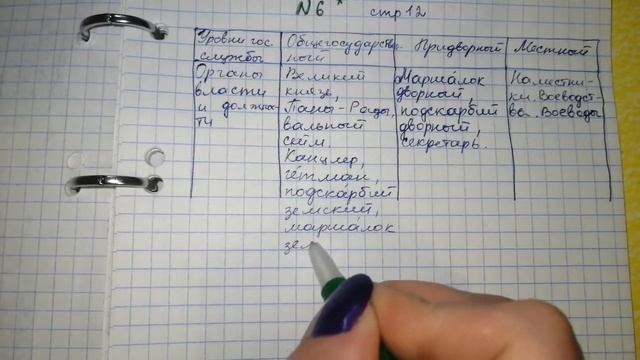 N6* стр 12
Уровни гос.
службы
Общегосударствен-
ный
Придворный
Местный
Органы
власти
и должнос-
ти
Великий
князь,
Паны-Рады,
вальный
сейм.
Канцлер,
гетман,
подскарбий
земский,
маршалок
зем
Маршалок
дворный,
подскарбий
дворный,
секретарь.
Наместни-
ки. Воеводст-
ва. Воеводы